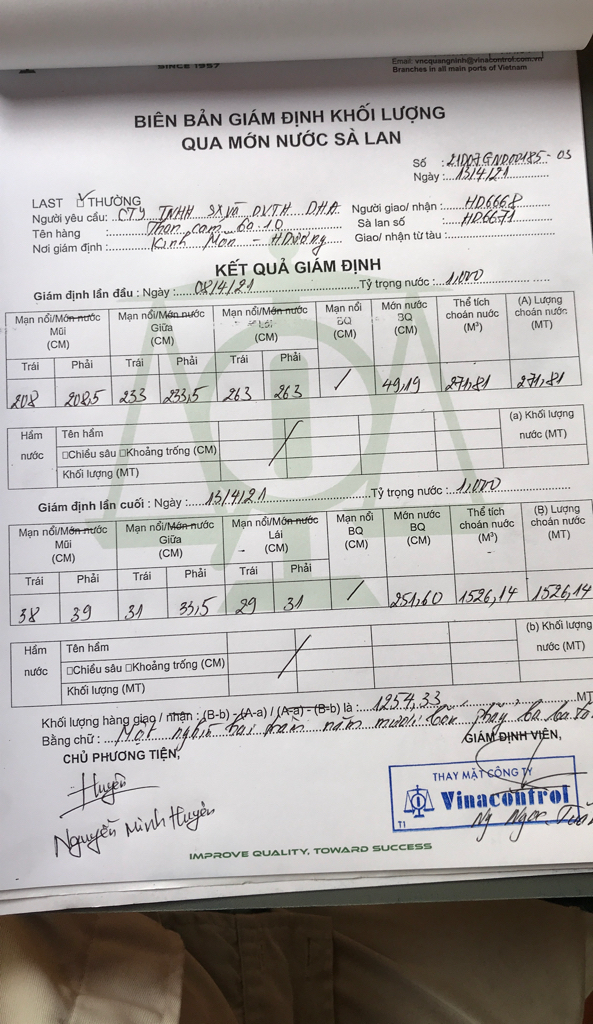 SINCE 1957
Email: vncquangninh@vinacontrol.com.vn
Branches in all main ports of Vietnam
BIÊN BẢN GIÁM ĐỊNH KHỐI LƯỢNG
QUA MỚN NƯỚC SÀ LAN
Số : 21D07GND00185-03
Ngày : 13/4/21
LAST THƯỜNG
Người yêu cầu: CTY TNHH SX và DVTH DHA Người giao/ nhận : HD6668
Tên hàng : Than cám 6a.10 Sà lan số : HD6671
Nơi giám định : Kinh Môn - HDương Giao/ nhận từ tàu :
KẾT QUẢ GIÁM ĐỊNH
Giám định lần đầu : Ngày : 08/4/21 Tỷ trọng nước : 1,000
Mạn nổi/Mớn nước Mũi (CM) Mạn nổi/Mớn nước Giữa (CM) Mạn nổi/Mớn nước Lái (CM) Mạn nổi BQ (CM) Mớn nước BQ (CM) Thể tích choán nước (M³) (A) Lượng choán nước (MT)
Trái Phải Trái Phải Trái Phải
208 208,5 233 233,5 263 263 / 49,19 271,81 271,81
Hầm nước Tên hầm (a) Khối lượng nước (MT)
□Chiều sâu □Khoảng trống (CM)
Khối lượng (MT)
Giám định lần cuối : Ngày : 13/4/21 Tỷ trọng nước : 1,000
Mạn nổi/Mớn nước Mũi (CM) Mạn nổi/Mớn nước Giữa (CM) Mạn nổi/Mớn nước Lái (CM) Mạn nổi BQ (CM) Mớn nước BQ (CM) Thể tích choán nước (M³) (B) Lượng choán nước (MT)
Trái Phải Trái Phải Trái Phải
38 39 31 33,5 29 31 / 251,60 1526,14 1526,14
Hầm nước Tên hầm (b) Khối lượng nước (MT)
□Chiều sâu □Khoảng trống (CM)
Khối lượng (MT)
Khối lượng hàng giao / nhận : (B-b) - (A-a) / (A-a) - (B-b) là : 1254,33 MT
Bằng chữ : Một nghìn hai trăm năm mươi bốn phẩy ba ba
CHỦ PHƯƠNG TIỆN, GIÁM ĐỊNH VIÊN,
Huyền
Nguyễn Minh Huyền
THAY MẶT CÔNG TY
Vinacontrol
T1
Ng Ngọc
IMPROVE QUALITY, TOWARD SUCCESS